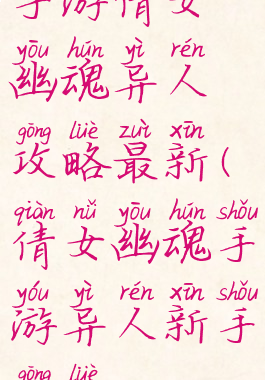 手游倩女
yōu hún yì rén
幽魂异人
gōng lüè zuì xīn
攻略最新(
qiàn nǚ yōu hún shǒu
倩女幽魂手
yóu yì rén xīn shǒu
游异人新手
gōng lüè